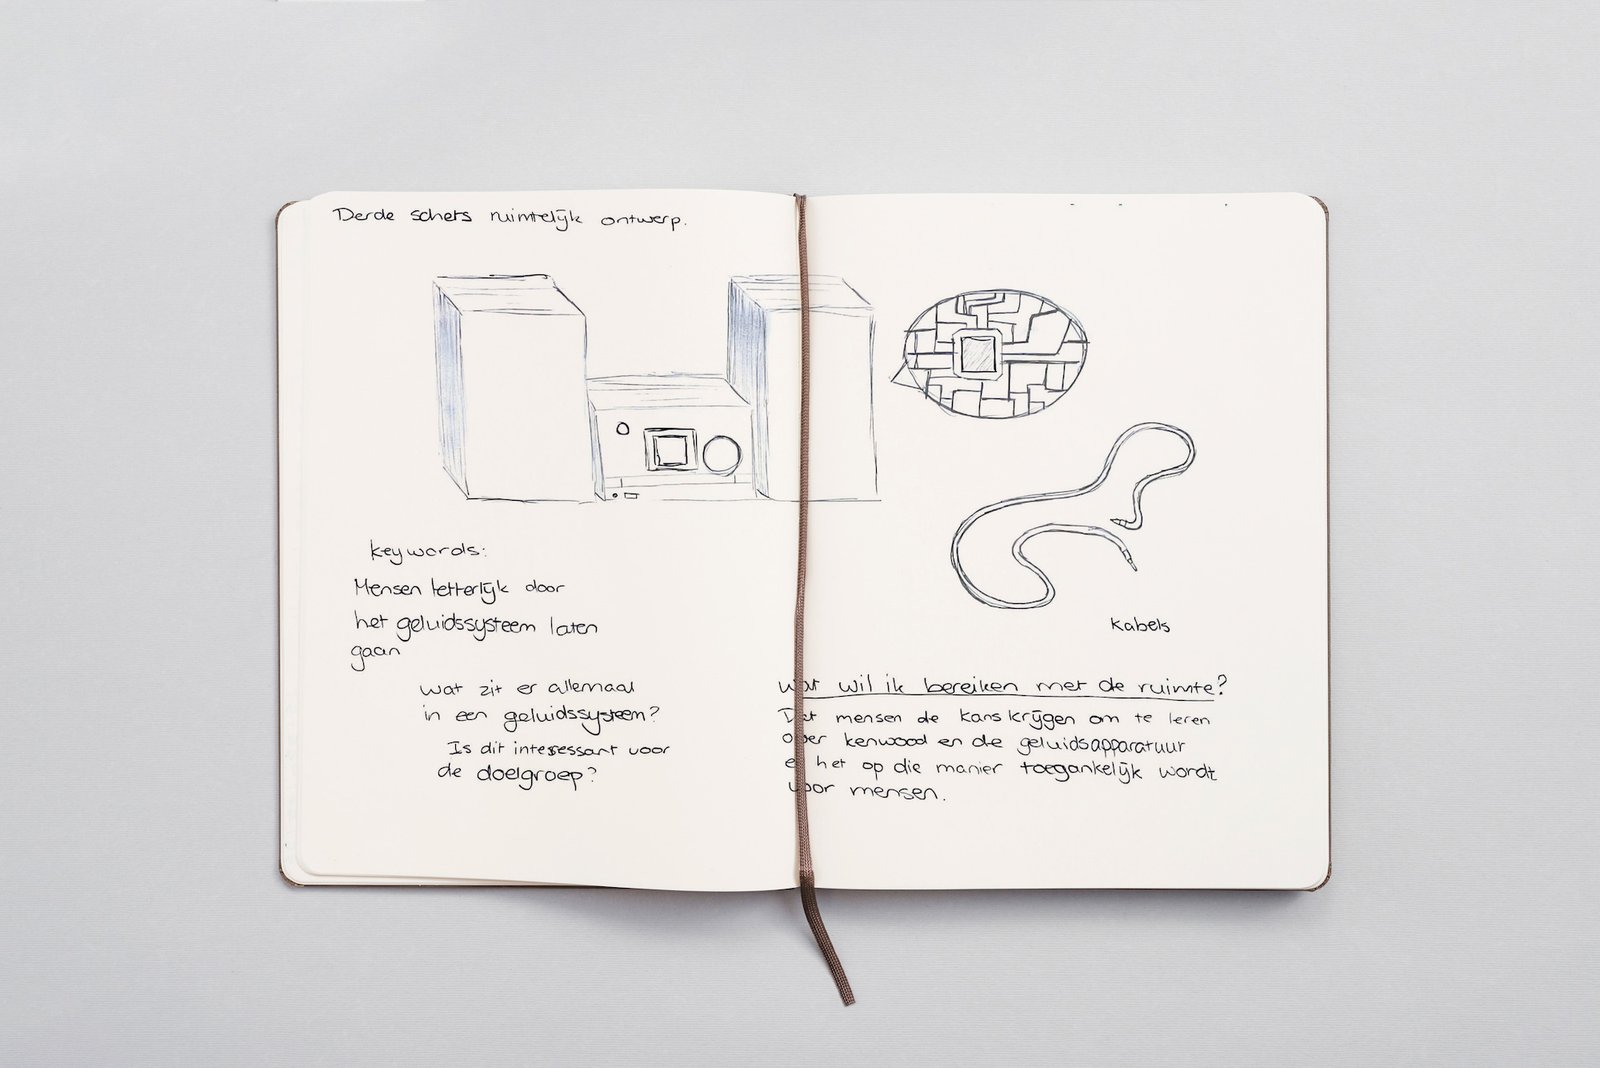 Derde schets ruimtelijk ontwerp.
keywords:
Mensen letterlijk door
het geluidssysteem laten
gaan
wat zit er allemaal
in een geluidssysteem?
Is dit interessant voor
de doelgroep?
kabels
Wat wil ik bereiken met de ruimte?
Dat mensen de kans krijgen om te leren
over kenwood en de geluidsapparatuur
en het op die manier toegankelijk wordt
voor mensen.